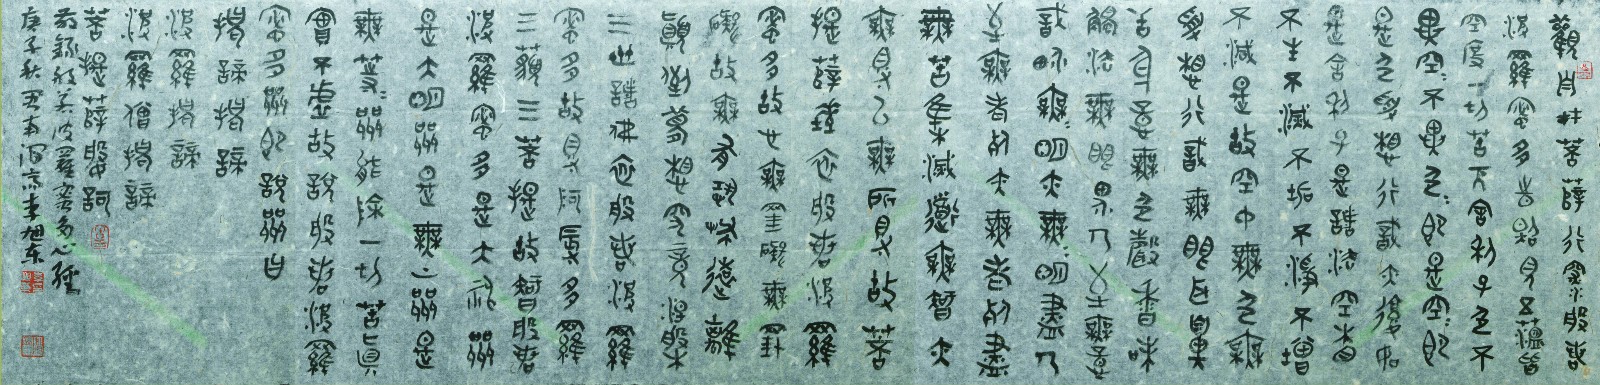 觀自在菩薩行深般若
波羅蜜多時照見五蘊皆
空度一切苦厄舍利子色不
異空空不異色色即是空空即
是色受想行識亦復如
是舍利子是諸法空相
不生不滅不垢不淨不增
不減是故空中無色無
受想行識無眼耳鼻
舌身意無色聲香味
觸法無眼界乃至無意
識界無無明亦無無明盡乃
至無老死亦無老死盡
無苦集滅道無智亦
無得以無所得故菩
提薩埵依般若波羅
蜜多故心無罣礙無罣
礙故無有恐怖遠離
顛倒夢想究竟涅槃
三世諸佛依般若波羅
蜜多故得阿耨多羅
三藐三菩提故智般若
波羅蜜多是大神咒
是大明咒是無上咒是
無等等咒能除一切苦真
實不虛故說般若波羅
蜜多咒即說咒曰
揭諦揭諦
波羅揭諦
波羅僧揭諦
菩提薩婆訶
敬錄般若波羅蜜多心經
庚子秋李旭东